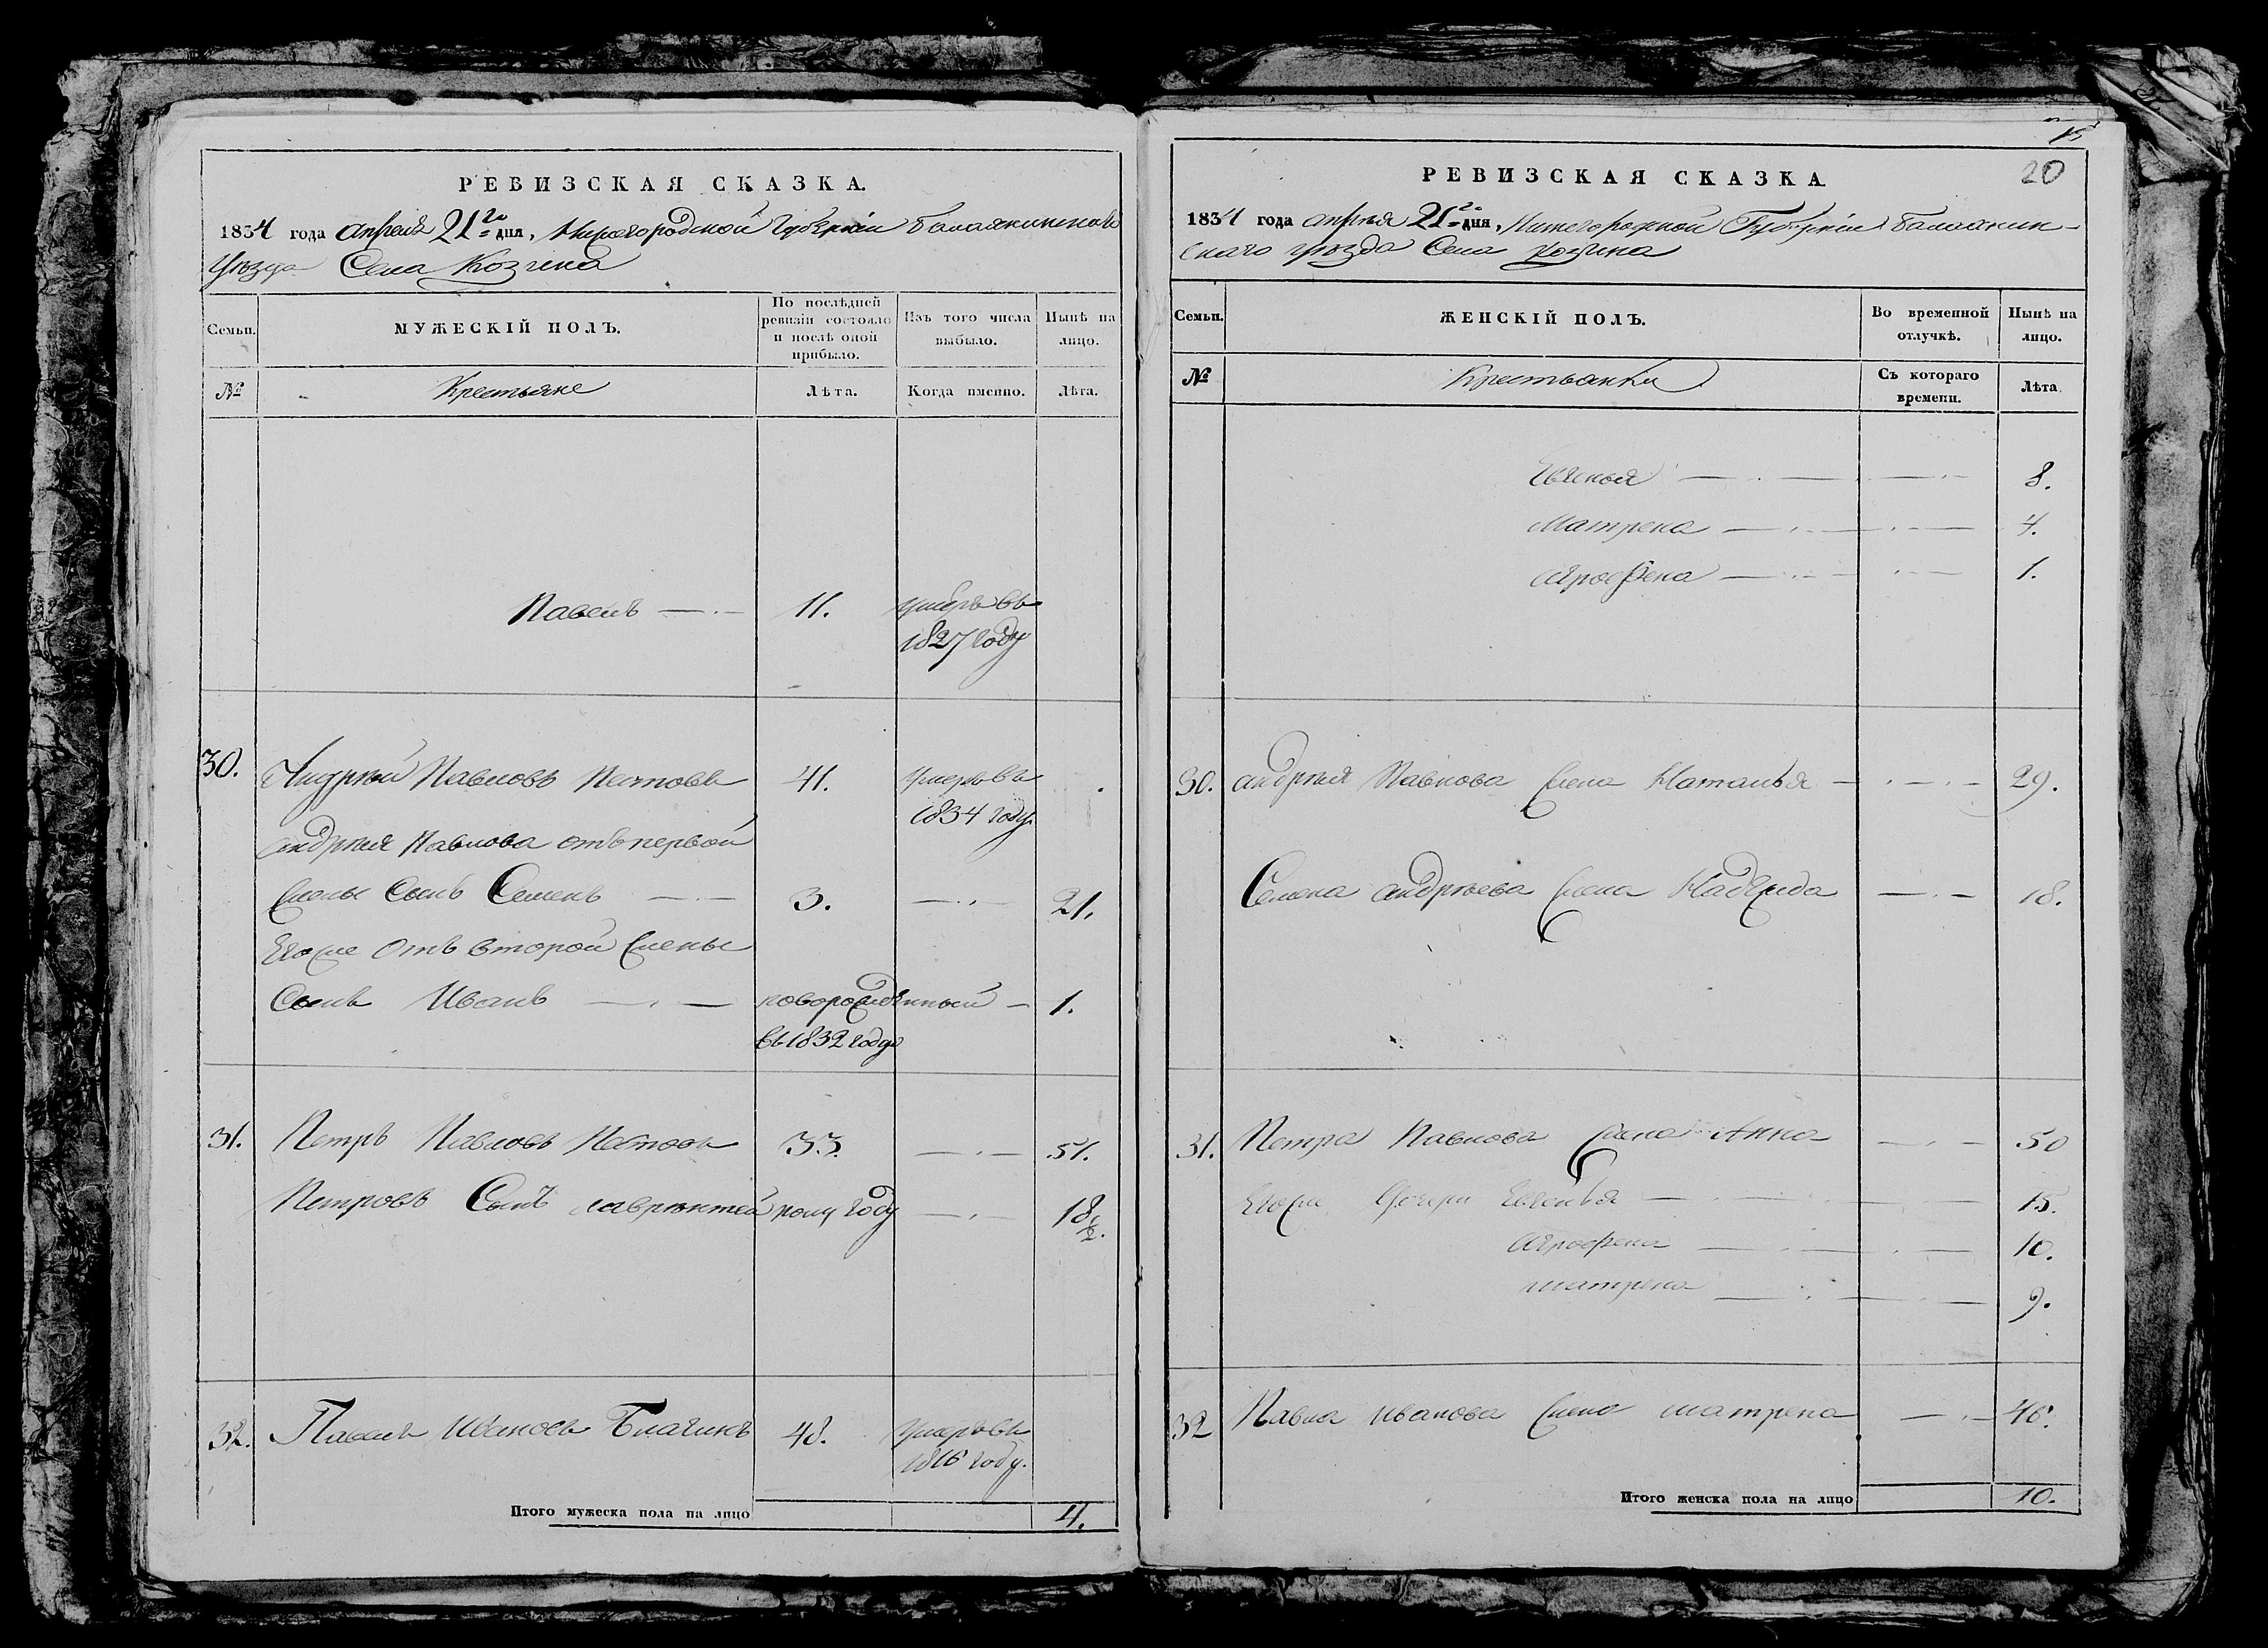 РЕВИЗСКАЯ СКАЗКА.
1834 года апреля 21го дня, Нижегородской Губернии Балахнинскаго
Уѣзда Села Козина
Семьи.
МУЖЕСКІЙ ПОЛЪ.
По послѣдней ревизіи состояло и послѣ оной прибыло.
Изъ того числа выбыло.
Нынѣ на лицо.
№
Крестьяне
Лѣта.
Когда именно.
Лѣта.
Павелъ — 11. умеръ въ
1827 году
30. Андрѣй Павловъ 41. умеръ въ
1834 году
андрѣя Павлова отъ первой
жены Сынъ Семенъ — 3. — 21.
Егоже отъ второй жены
Сынъ Иванъ — новорожденный — 1.
въ 1832 году
31. Петръ Павловъ 33. — 51.
Петровъ Сынъ лаврѣнтей полу году — 18½.
32. Павелъ Ивановъ 48. умеръ въ
1816 году.
Итого мужеска пола на лицо 4.
15
20
РЕВИЗСКАЯ СКАЗКА
1834 года апрѣля 21го дня, Нижегородской Губерніи Балахнин-
скаго уѣзда Села Козина
Семьи.
ЖЕНСКІЙ ПОЛЪ.
Во временной отлучкѣ.
Нынѣ на лицо.
№
Крестьянки
Съ котораго времени.
Лѣта
— 8.
Матрена — 4.
Аграфена — 1.
30. андрѣя Павлова жена Наталья — 29.
Семена андрѣева жена Надежда — 18.
31. Петра Павлова жена Анна — 50
Егоже дочери Евгенья — 15.
Аграфена — 10.
матрена — 9.
32 Павла иванова жена матрена — 46.
Итого женска пола на лицо 10.